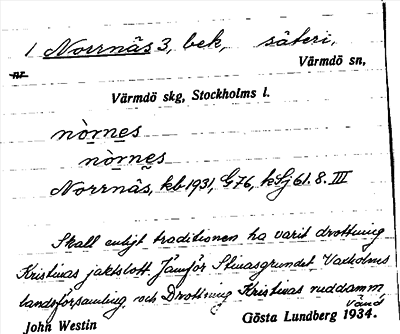 1 Norrnäs 3, bek, säteri,
nr
Värmdö sn,
Värmdö skg, Stockholms l.
nòrnes
nòrnes
Norrnäs, kb 1931, G76, kSj 61.8.III
Skall enligt traditionen ha varit drottning
Kristinas jaktslott. Jämför Stinasgrundet Vaxholms
landsförsamling och Drottning Kristinas ruddamm
Värmdö
John Westin Gösta Lundberg 1934.